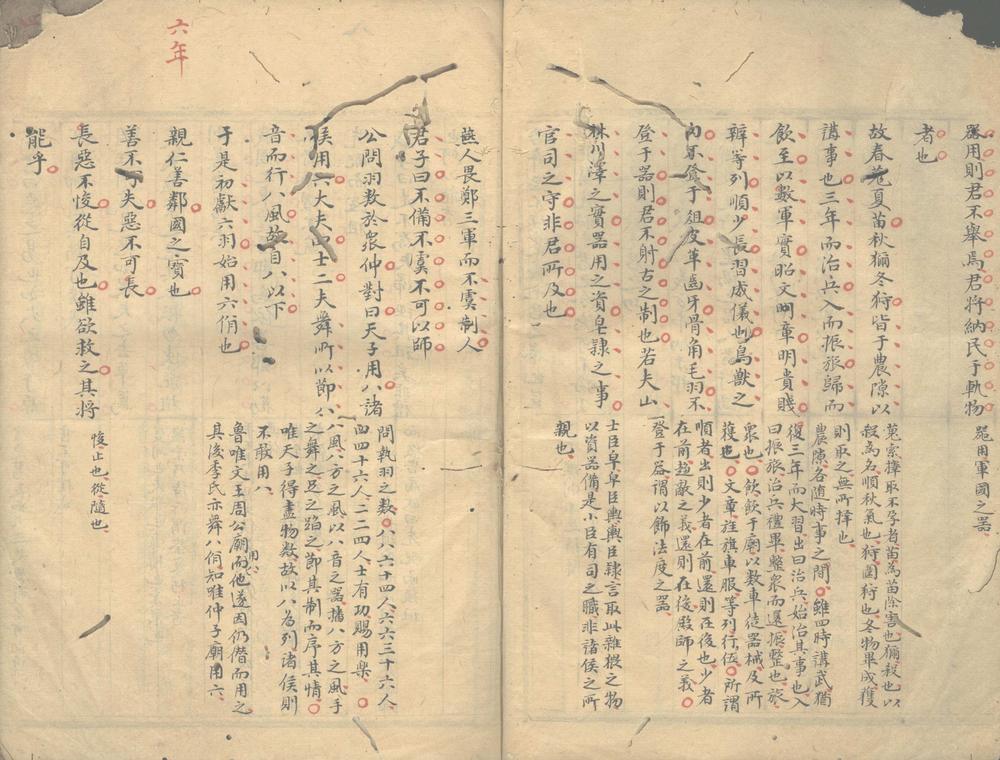 器用則君不舉焉君將納民于軌物
者也
故春蒐夏苗秋獮冬狩皆于農隙以
講事也三年而治兵入而振旅歸而
飲至以數軍實昭文明章明貴賤
辨等列順少長習威儀也鳥獸之
肉不登于俎皮革齒牙骨角毛羽不
登于器則君不射古之制也若夫山
林川澤之實器用之資皂隸之事
官司之守非君所及也
器用軍國之器
蒐索擇取不孕者苗為苗除害也獮殺也以
殺為名順秋氣也狩圍狩也冬物畢成獲
則取之無所擇也
農隙各隨時事之間雖四時講武猶
復三年而大習出曰治兵始治其事也入
曰振旅治兵禮畢整衆而還振整也旅
衆也飲飲于廟以數車徒器械及所
獲也文章旌旗車服等列行伍所謂
順者出則少者在前還則在後也少者
在前趨敵之義還則在後殿師之義
登于器謂以飾法度之器
士臣皁皁臣輿輿臣隸言取此雜猥之物
以資器備是小臣有司之職非諸侯之所
親也
燕人畏鄭三軍而不虞制人
君子曰不備不虞不可以師
公問羽數於衆仲對曰天子用八諸
侯用六大夫四士二夫舞所以節八
音而行八風故自八以下
于是初獻六羽始用六佾也
問執羽之數八八六十四人六六三十六人
四四十六人二二四人士有功賜用樂
八風八方之風以八音之器播八方之風手
之舞之足之蹈之節其制而序其情
唯天子得盡物數故以八為列諸侯則
不敢用八
魯唯文王周公廟用八而他遂因仍僭而用之
其後季氏亦舞八佾知唯仲子廟用六
六年
親仁善鄰國之寶也
善不可失惡不可長
長惡不悛從自及也雖欲救之其將
能乎
悛止也從隨也